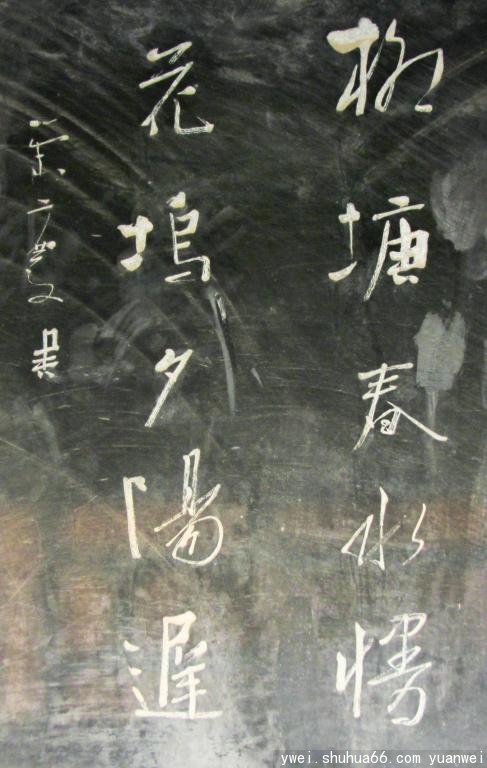 柳塘春水慢
花塢夕陽遲
ywei.shuhua66.com yuanwei